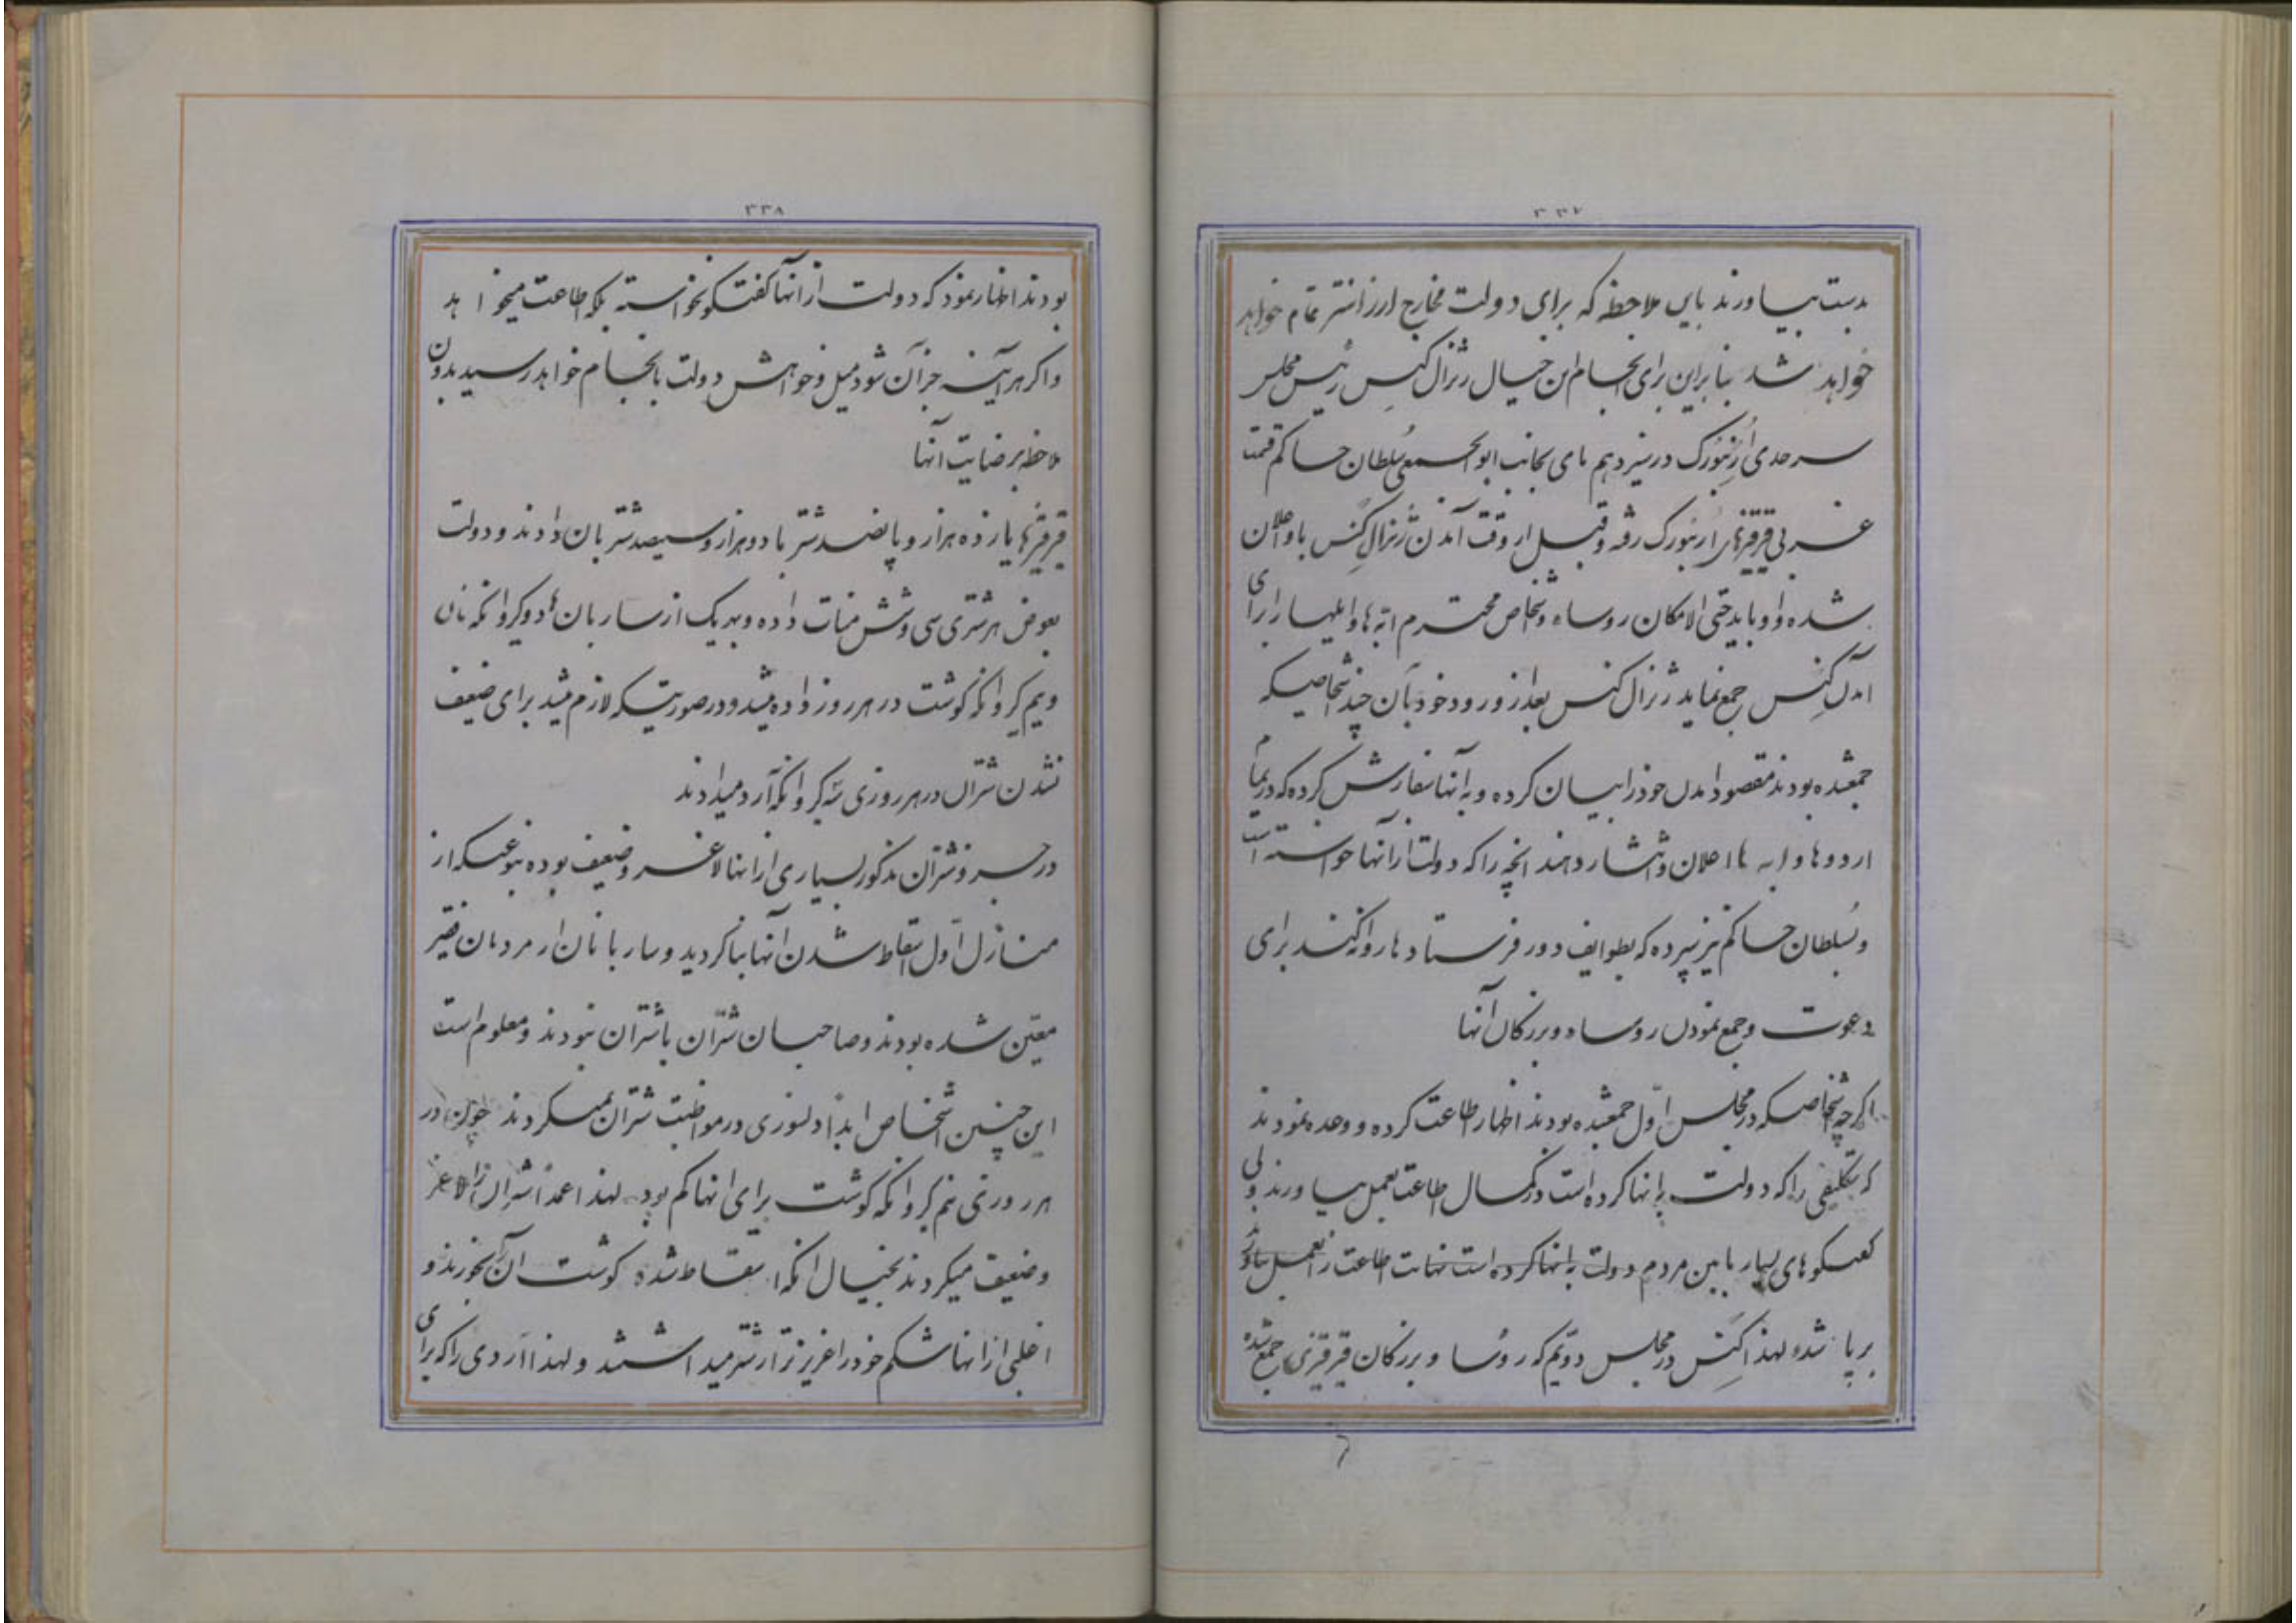 ۳۳۷
بدست بیاورند باین ملاحظه که برای دولت مخارج ارزانتر تمام خواهد
خواهد شد بنابراین برای انجام این خیال ژنرال گنس رئیس مجلس
سرحدی اُرنبورک در سیزدهم مای بجانب سلطان حاکم قسمت
غربی قرقزهای ارنبورک رفته و قبل از وقت آمدن ژنرال گنس باو اعلان
شده و او باید حتی الامکان روساء و اشخاص محترم ابه ها و ایلها را برای
آمدن گنس جمع نماید ژنرال گنس بعد از ورود خود بآن چند اشخاصیکه
جمعشده بودند مقصود آمدن خود را بیان کرده و به آنها سفارش کرده که در تمام
اردوها و ابه ها اعلان و انتشار دهند آنچه را که دولت از آنها خواسته است
و سُلطان حاکم نیز سپرده که بطوایف دور فرستادها روانه کند برای
دعوت و جمع نمودن روساء و بزرکان آنها
اکرچه اشخاصیکه در مجلس اوّل جمعشده بودند اظهار اطاعت کرده و وعده نمودند
که تکلیفی را که دولت به انها کرده است در کمال اطاعت بعمل بیاورند ولی
کفتکوهای بسیار مابین مردم دولت به انها کرده است نهایت اطاعت را بعمل بیاورند
برپا شد و لهذا گنس در مجلس دویّم که روُسا و بزرکان قرقزی جمع شده
۳۳۸
بودند اظهار نمود که دولت از انها کفتکو نخواسته بلکه اطاعت میخواهد
و اکر هر آینه جز آن شود میل و خواهش دولت بانجام خواهد رسید بدون
ملاحظه بر رضایت آنها
قرقزها یازده هزار و پانصد شتر با دو هزار و سیصد شتربان دادند و دولت
بعوض هر شتری سی و شش منات داده و بهر یک از ساربان ها دو کروانکه نان
و نیم کروانکه کوشت در هر روز داده میشد و در صورتیکه لازم میشد برای ضعیف
نشدن شتران در هر روزی سه کروانکه آرد میدادند
در جزو شتران مذکور بسیاری از انها لاغر و ضعیف بوده بنوعیکه از
منازل اوّل اسقاط شدن آنها بنا کردید و ساربانان از مردمان فقیر
معیّن شده بودند و صاحبان شتران با شتران نبودند و معلوم است
این چنین اشخاص ابداً دلسوزی در مواظبت شتران نمیکردند چون در
هر روزی نیم کروانکه کوشت برای انها کم بود لهذا عمداً شتران را لاغر
و ضعیف میکردند بخیال انکه اسقاط شده کوشت آن را بخورند و
اغلبی از انها شکم خود را عزیزتر از شتر میداشتند و لهذا آردی را که برای